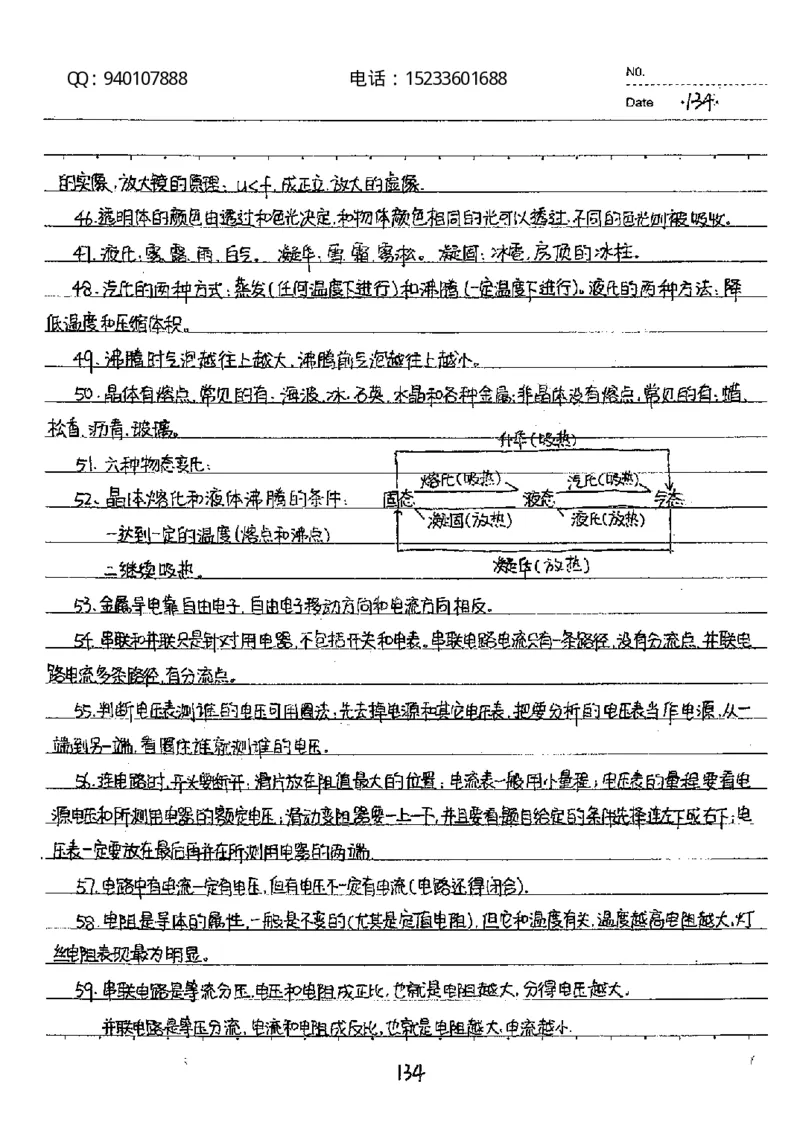 QQ：940107888 电话：15233601688 NO.
Date ·134·
的实像,放大镜的原理：u<f,成正立.放大的虚像.
46.透明体的颜色由透过和色光决定,和物体颜色相同的光可以透过.不同的色光则被吸收。
47.液化:雾.露.雨.白气。凝华:雪.霜.雾凇。凝固:冰雹,房顶的冰柱.
48.汽化的两种方式:蒸发(任何温度下进行)和沸腾(一定温度下进行)。液化的两种方法:降
低温度和压缩体积。
49.沸腾时气泡越往上越大,沸腾前气泡越往上越小。
50.晶体有熔点,常见的有:海波.冰.石英.水晶和各种金属;非晶体没有熔点,常见的有:蜡.
松香.沥青.玻璃。
升华(吸热)
51.六种物态变化:
熔化(吸热) 汽化(吸热)
52、晶体熔化和液体沸腾的条件: 固态 液态 气态
凝固(放热) 液化(放热)
一达到一定的温度(熔点和沸点)
二继续吸热. 凝华(放热)
53.金属导电靠自由电子,自由电子移动方向和电流方向相反。
54.串联和并联只是针对用电器,不包括开关和电表。串联电路电流只有一条路径,没有分流点.并联电
路电流多条路径,有分流点。
55.判断电压表测谁的电压可用圈法:先去掉电源和其它电压表,把要分析的电压表当作电源,从一
端到另一端,看圈住谁就测谁的电压.
56.连电路时,开头要断开;滑片放在阻值最大的位置;电流表一般用小量程;电压表的量程要看电
源电压和所测用电器的额定电压;滑动变阻器要一上一下,并且要看题目给定的条件先择连左下或右下;电
压表一定要放在最后再并在所测用电器的两端.
57.电路中有电流一定有电压,但有电压不一定有电流(电路还得闭合).
58.电阻是导体的属性,一般是不变的(尤其是定值电阻),但它和温度有关,温度越高电阻越大,灯
丝电阻表现最为明显。
59.串联电路是等流分压,电压和电阻成正比,也就是电阻越大,分得电压越大.
并联电路是等压分流,电流和电阻成反比,也就是电阻越大.电流越小.
134